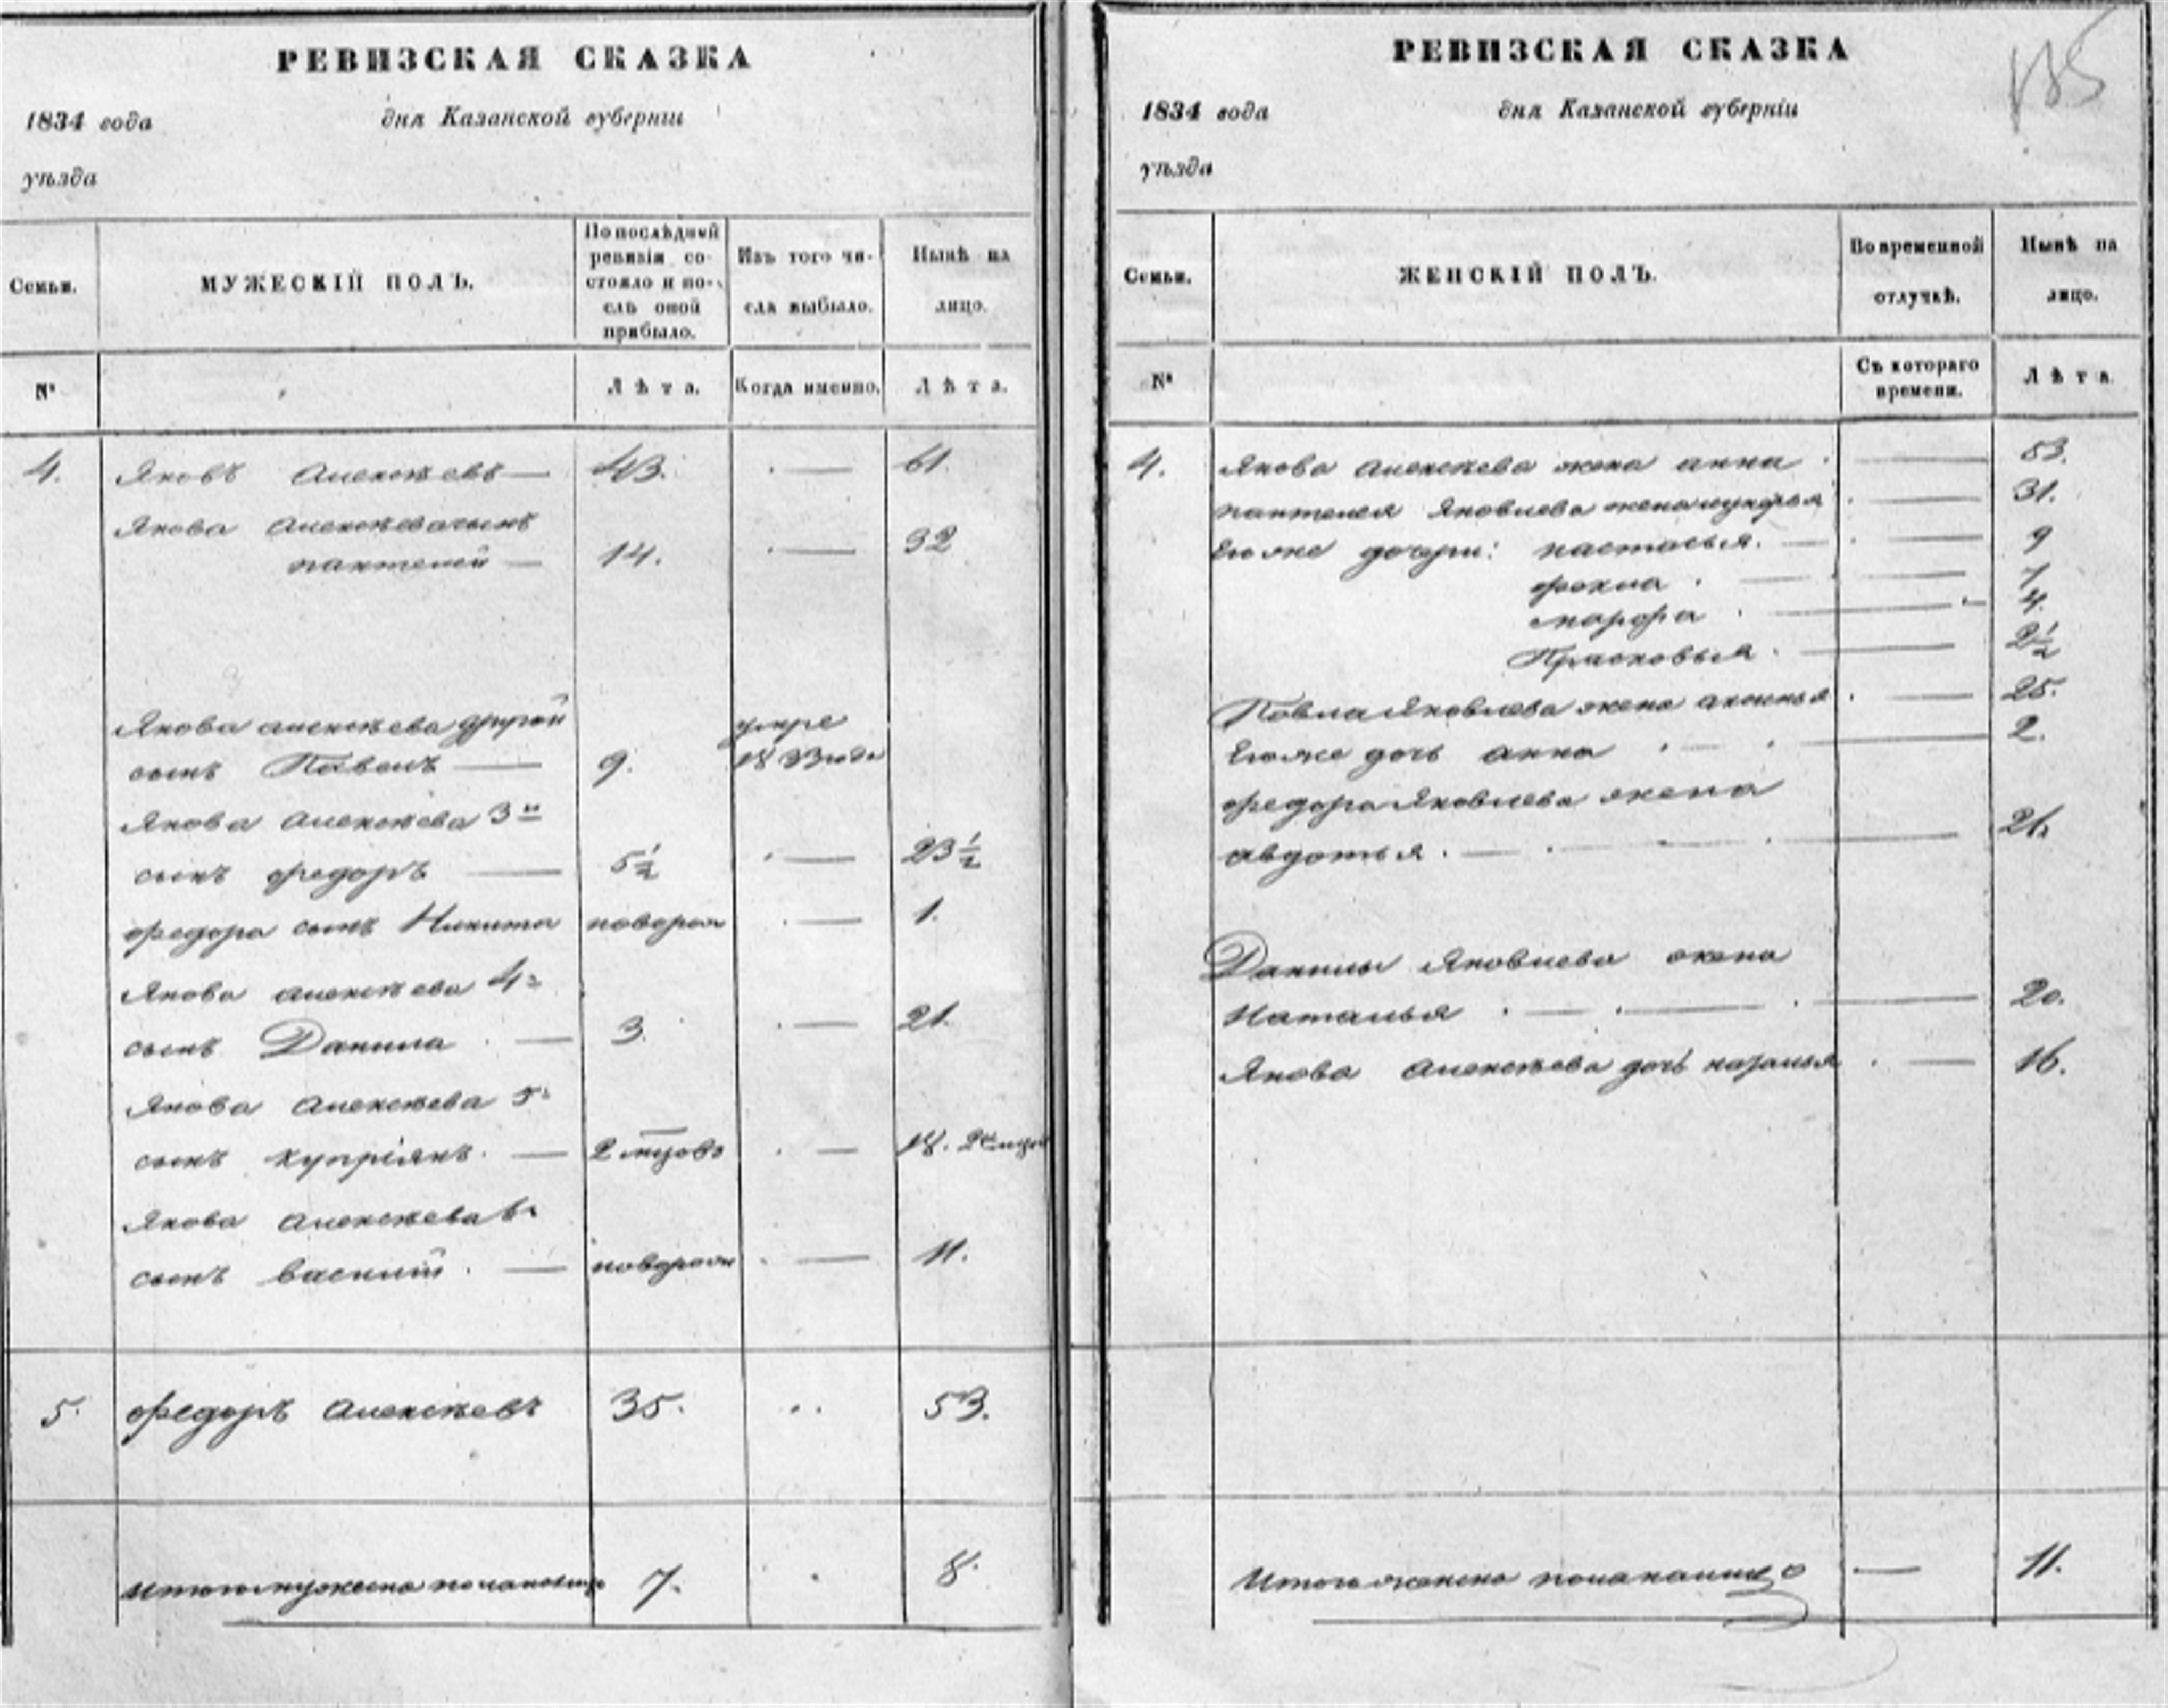 РЕВИЗСКАЯ СКАЗКА
1834 года дня Казанской губерніи
уѣзда
Семьи. МУЖЕСКІЙ ПОЛЪ. По послѣдней ревизіи состояло и послѣ оной прибыло. Изъ того числа выбыло. Нынѣ на лицо.
№ Лѣта. Когда именно. Лѣта.
4. Яковъ Алексѣевъ — 43. — 61.
Якова Алексѣева сынъ
пантелей — 14. — 32
Якова алексѣева другой умре
сынъ Павелъ — 9. 1833 года
Якова Алексѣева 3й
сынъ федоръ — 5½ — 23½
федора сынъ Никита новорож — 1.
Якова алексѣева 4й
сынъ Данила — 3. — 21.
Якова Алексѣева 5й
сынъ купріянъ. — 2 мцовъ — 18.
Якова Алексѣева 6й
сынъ василій. — новорож — 11.
5. федоръ Алексѣевъ 35. 53.
итого мужеска пола налицо 7. 8.
РЕВИЗСКАЯ СКАЗКА 135
1834 года дня Казанской губерніи
уѣзда
Семьи. ЖЕНСКІЙ ПОЛЪ. Во временной отлучкѣ. Нынѣ на лицо.
№ Съ котораго времени. Лѣта
4. Якова Алексѣева жена анна — 53.
пантелея Яковлева жена лукерья — 31.
Его же дочери: настасья. — 9
фекла — 7
марфа — 4.
Прасковья. — 2½
Павла Яковлева жена аксинья — 25.
Его же дочь анна — 2.
федора Яковлева жена
авдотья. — 26
Данилы Яковлева жена
Наталья — 20.
Якова Алексѣева дочь — 16.
Итого женска пола налицо — 11.